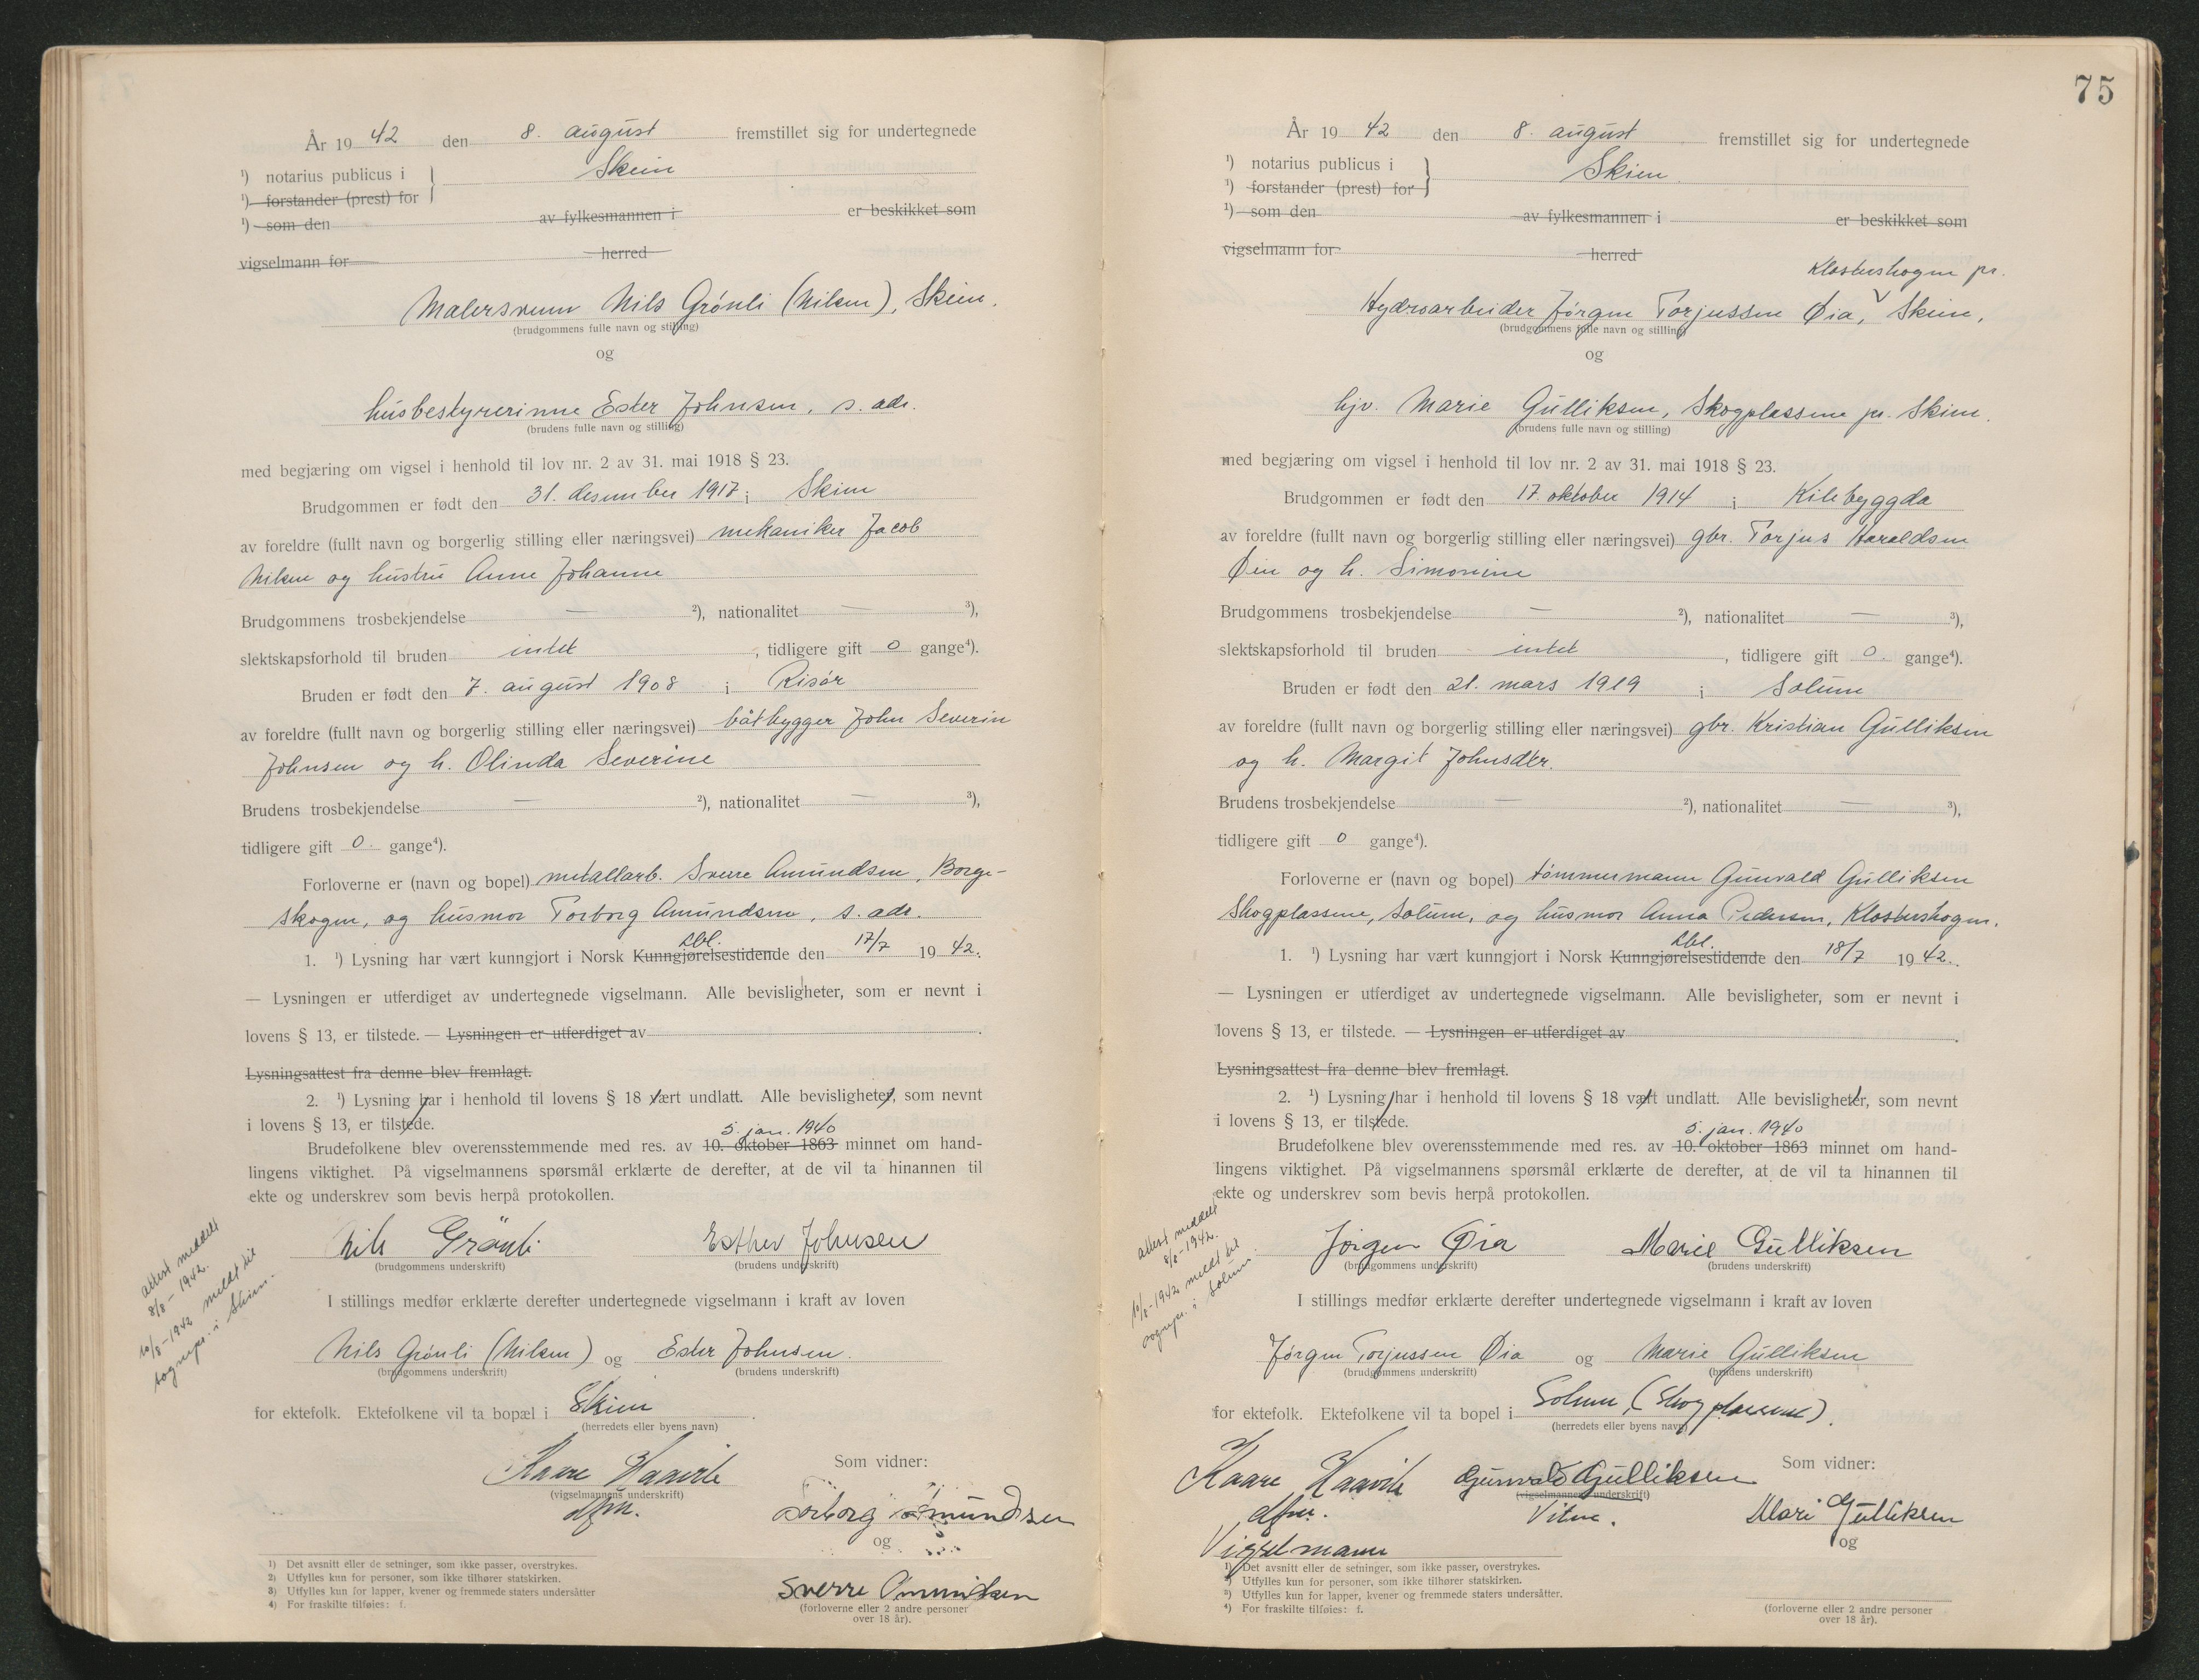 År 19 42 den 8. august fremstillet sig for undertegnede
¹) notarius publicus i } Skien
¹) forstander (prest) for
¹) som den av fylkesmannen i er beskikket som
vigselmann for herred
Malersvenn Nils Grönli (Nilsen), Skien.
(brudgommens fulle navn og stilling)
og
husbestyrerinne Ester Johnsen, s. adr.
(brudens fulle navn og stilling)
med begjæring om vigsel i henhold til lov nr. 2 av 31. mai 1918 § 23.
Brudgommen er født den 31. desember 1917 i Skien
av foreldre (fullt navn og borgerlig stilling eller næringsvei) mekaniker Jacob
Nilsen og hustru Anne Johanne
Brudgommens trosbekjendelse — ²), nationalitet — ³),
slektskapsforhold til bruden intet, tidligere gift 0 gange⁴).
Bruden er født den 7. august 1908 i Risør
av foreldre (fullt navn og borgerlig stilling eller næringsvei) båtbygger John Severin
Johnsen og h. Olinda Severine
Brudens trosbekjendelse — ²), nationalitet — ³),
tidligere gift 0. gange⁴).
Forloverne er (navn og bopel) metallarb. Sverre Amundsen, Borge-
skogen, og husmor Torborg Amundsen, s. adr.
1. ¹) Lysning har vært kunngjort i Norsk Kunngjørelsestidende Lbl. den 17/7 19 42.
— Lysningen er utferdiget av undertegnede vigselmann. Alle bevisligheter, som er nevnt i
lovens § 13, er tilstede. — Lysningen er utferdiget av .
Lysningsattest fra denne blev fremlagt.
2. ¹) Lysning har i henhold til lovens § 18 vært undlatt. Alle bevisligheter, som nevnt
i lovens § 13, er tilstede.
5. jan. 1940
Brudefolkene blev overensstemmende med res. av 10. oktober 1863 minnet om hand-
lingens viktighet. På vigselmannens spørsmål erklærte de derefter, at de vil ta hinannen til
ekte og underskrev som bevis herpå protokollen.
attest meddelt
8/8 - 1942.
10/8-1942 meldt til
sognepr. i Skien.
Nils Grönli Esther Johnsen
(brudgommens underskrift) (brudens underskrift)
I stillings medfør erklærte derefter undertegnede vigselmann i kraft av loven
Nils Grönli (Nilsen) og Ester Johnsen.
(brudgommens underskrift) (brudens underskrift)
for ektefolk. Ektefolkene vil ta bopæl i Skien.
(herredets eller byens navn)
Kaare Haavik
(vigselmannens underskrift)
dfm.
Som vidner:
Torborg Amundsen
og
Sverre Amundsen
(forloverne eller 2 andre personer
over 18 år).
1) Det avsnitt eller de setninger, som ikke passer, overstrykes.
2) Utfylles kun for personer, som ikke tilhører statskirken.
3) Utfylles kun for lapper, kvener og fremmede staters undersåtter
4) For fraskilte tilføies: f.
75
År 19 42 den 8. august fremstillet sig for undertegnede
¹) notarius publicus i } Skien
¹) forstander (prest) for
¹) som den av fylkesmannen i er beskikket som
vigselmann for herred
Klosterskogen pr.
Hydroarbeider Jørgen Torjussen Øia, Skien,
(brudgommens fulle navn og stilling)
og
hjv. Marie Gulliksen, Skogplassene pr. Skien.
(brudens fulle navn og stilling)
med begjæring om vigsel i henhold til lov nr. 2 av 31. mai 1918 § 23.
Brudgommen er født den 17. oktober 1914 i Kilebyggda
av foreldre (fullt navn og borgerlig stilling eller næringsvei) gbr. Torjus Haraldsen
Øien og h. Simonine
Brudgommens trosbekjendelse — ²), nationalitet — ³),
slektskapsforhold til bruden intet, tidligere gift 0. gange⁴).
Bruden er født den 21. mars 1919 i Solum
av foreldre (fullt navn og borgerlig stilling eller næringsvei) gbr. Kristian Gulliksen
og h. Margit Johnsdtr.
Brudens trosbekjendelse — ²), nationalitet — ³),
tidligere gift 0 gange⁴).
Forloverne er (navn og bopel) tømmermann Gunvald Gulliksen
Skogplassene, Solum, og husmor Anna Pedersen, Klosterskogen.
1. ¹) Lysning har vært kunngjort i Norsk Kunngjørelsestidende Lbl. den 18/7 19 42.
— Lysningen er utferdiget av undertegnede vigselmann. Alle bevisligheter, som er nevnt i
lovens § 13, er tilstede. — Lysningen er utferdiget av .
Lysningsattest fra denne blev fremlagt.
2. ¹) Lysning har i henhold til lovens § 18 vært undlatt. Alle bevisligheter, som nevnt
i lovens § 13, er tilstede.
5. jan. 1940
Brudefolkene blev overensstemmende med res. av 10. oktober 1863 minnet om hand-
lingens viktighet. På vigselmannens spørsmål erklærte de derefter, at de vil ta hinannen til
ekte og underskrev som bevis herpå protokollen.
attest meddelt
8/8-1942.
10/8-1942 meldt til
sognepr. i Solum.
Jörgen Øia Marie Gulliksen
(brudgommens underskrift) (brudens underskrift)
I stillings medfør erklærte derefter undertegnede vigselmann i kraft av loven
Jørgen Torjussen Øia og Marie Gulliksen
(brudgommens underskrift) (brudens underskrift)
for ektefolk. Ektefolkene vil ta bopel i Solum, (Skogplassene).
(herredets eller byens navn)
Kaare Haavik Gunvald Gulliksen Som vidner:
(vigselmannens underskrift)
dfm. Vitne. Mari Gulliksen
Vigselmann og
1) Det avsnitt eller de setninger, som ikke passer, overstrykes.
²) Utfylles kun for personer, som ikke tilhører statskirken.
³) Utfylles kun for lapper, kvener og fremmede staters undersåtter.
⁴) For fraskilte tilføies: f.
(forloverne eller 2 andre personer
over 18 år).